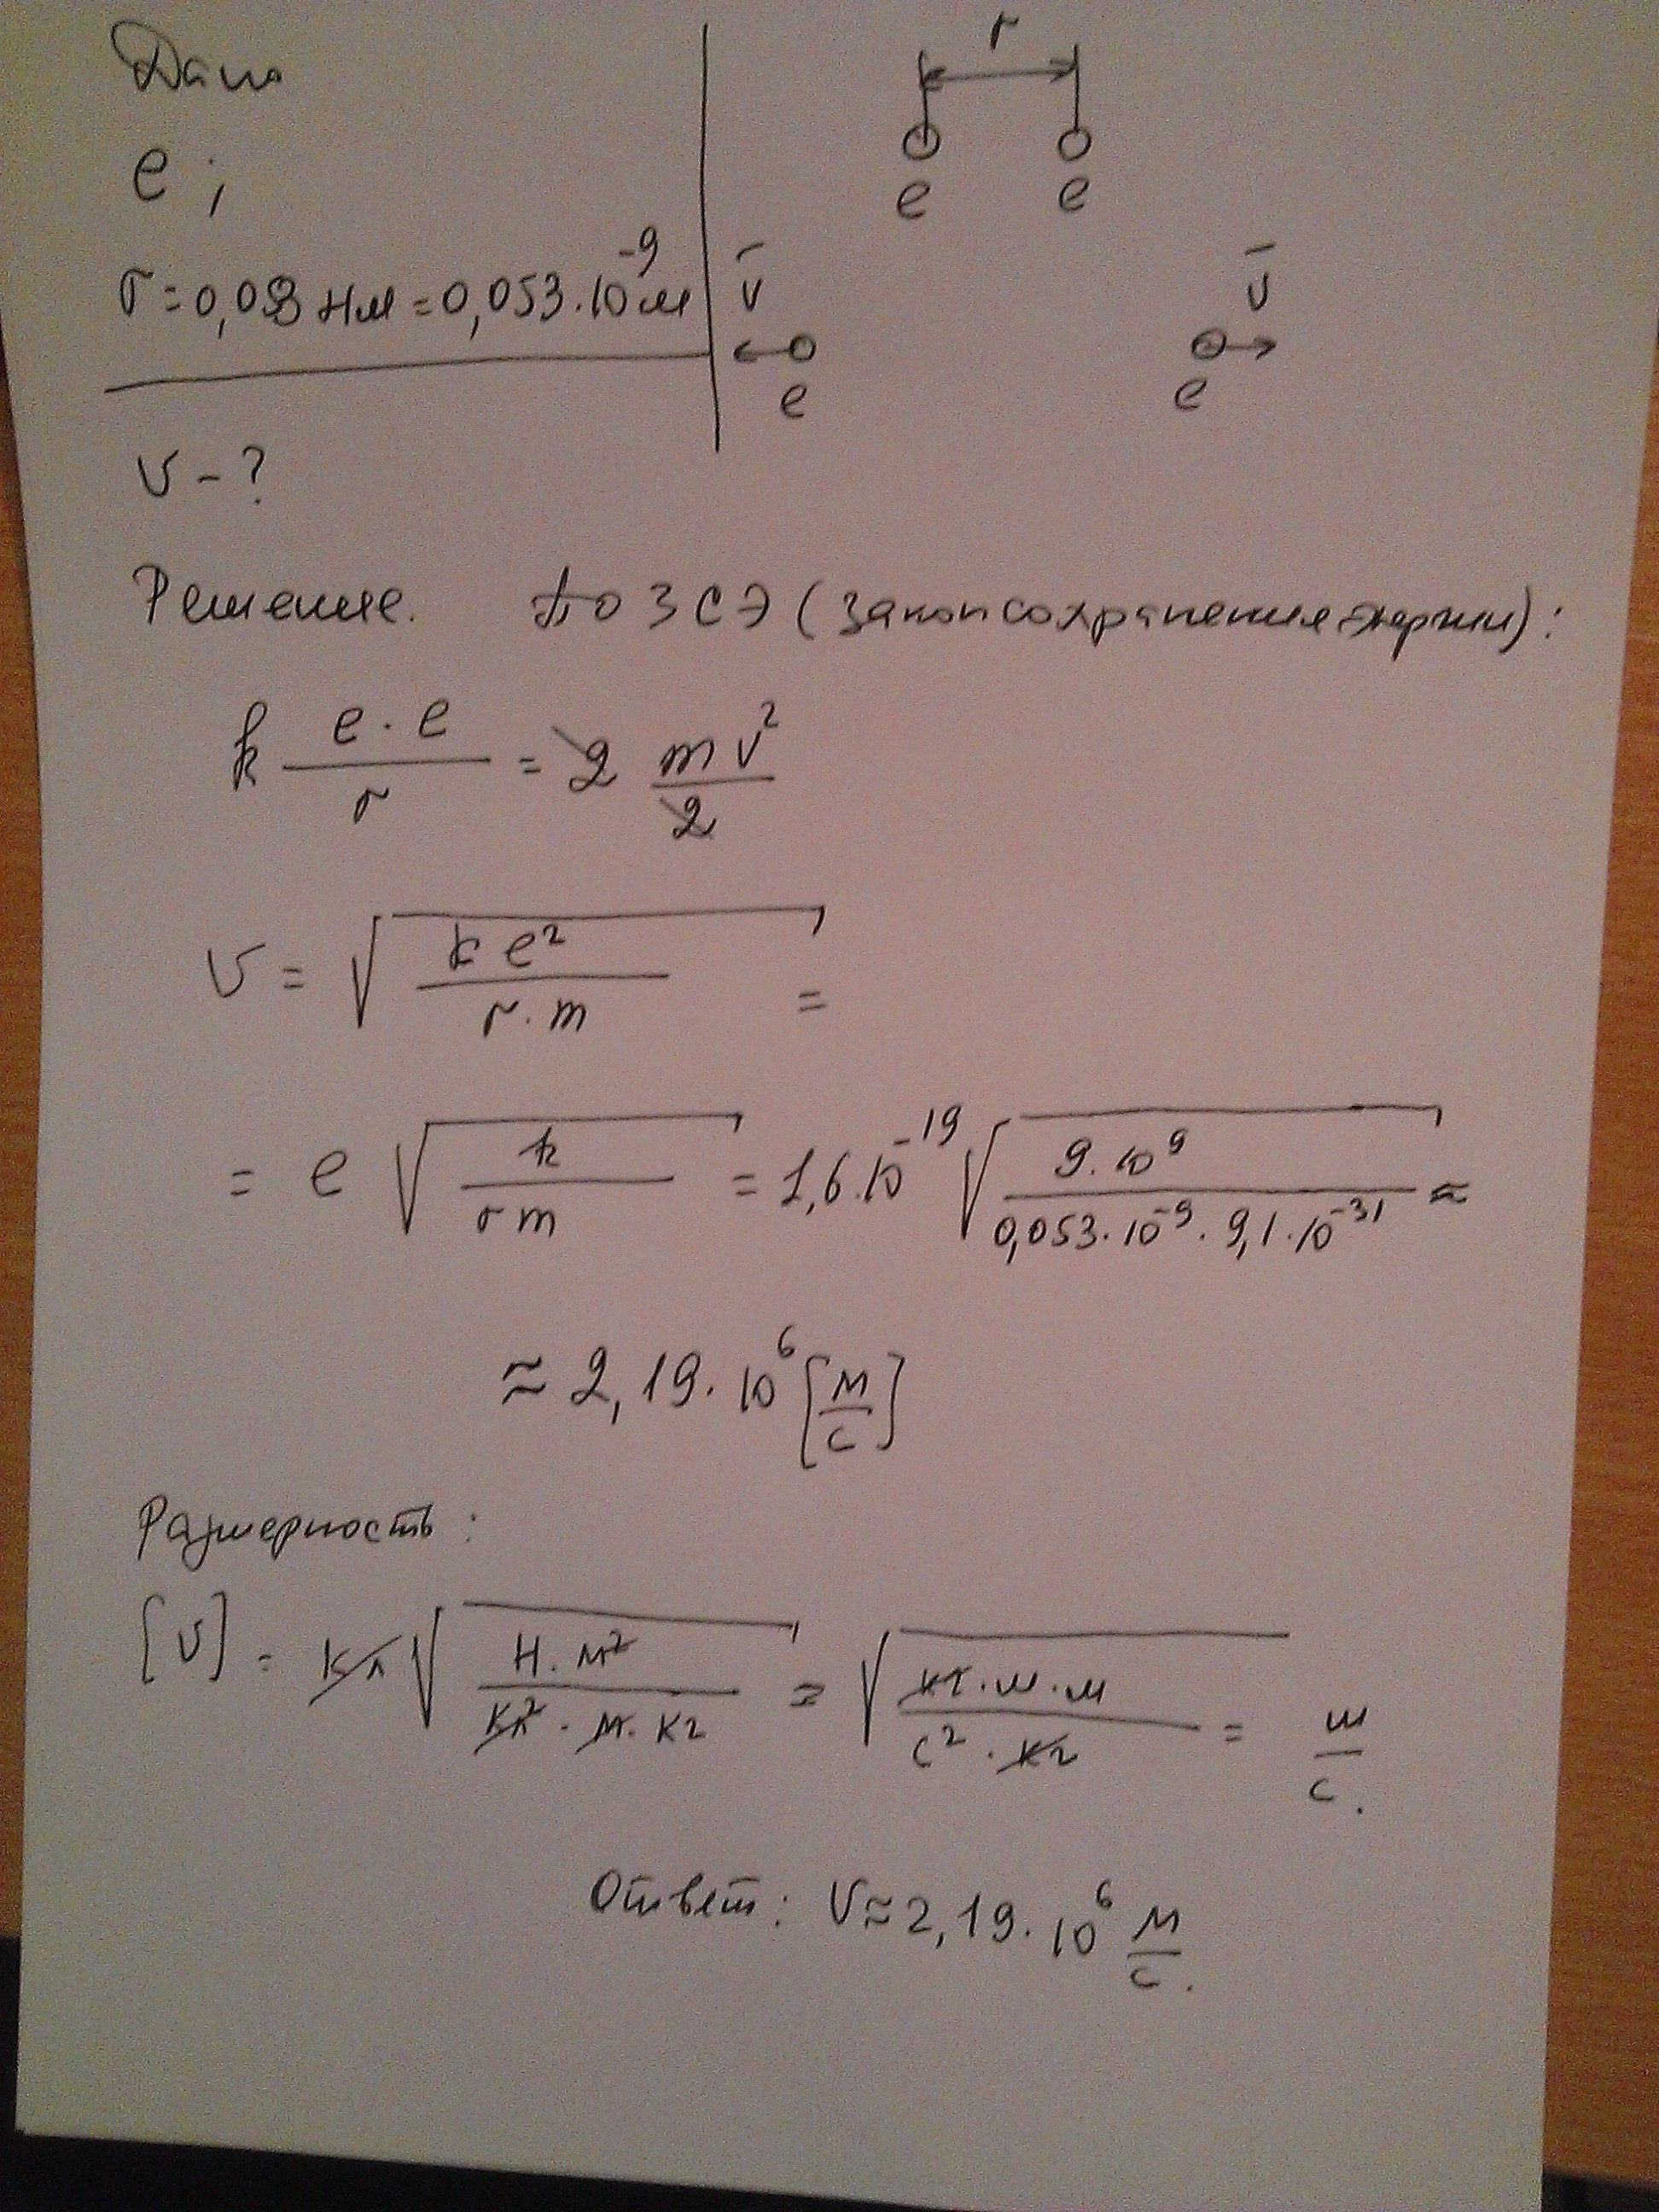 Дано
e ;
r = 0,053 нм = 0,053·10⁻⁹ м
v - ?
r
e e
v̄ v̄
e e
Решение. По ЗСЭ (закон сохранения энергии):
k (e·e)/r = 2 (mv²)/2
v = √(ke²/(r·m)) =
= e √(k/(rm)) = 1,6·10⁻¹⁹ √(9·10⁹/(0,053·10⁻⁹·9,1·10⁻³¹)) ≈
≈ 2,19·10⁶ [м/с]
Размерность:
[v] = Кл √(Н·м²/(Кл²·м·кг)) = √(кг·м·м/(с²·кг)) = м/с.
Ответ: v ≈ 2,19·10⁶ м/с.